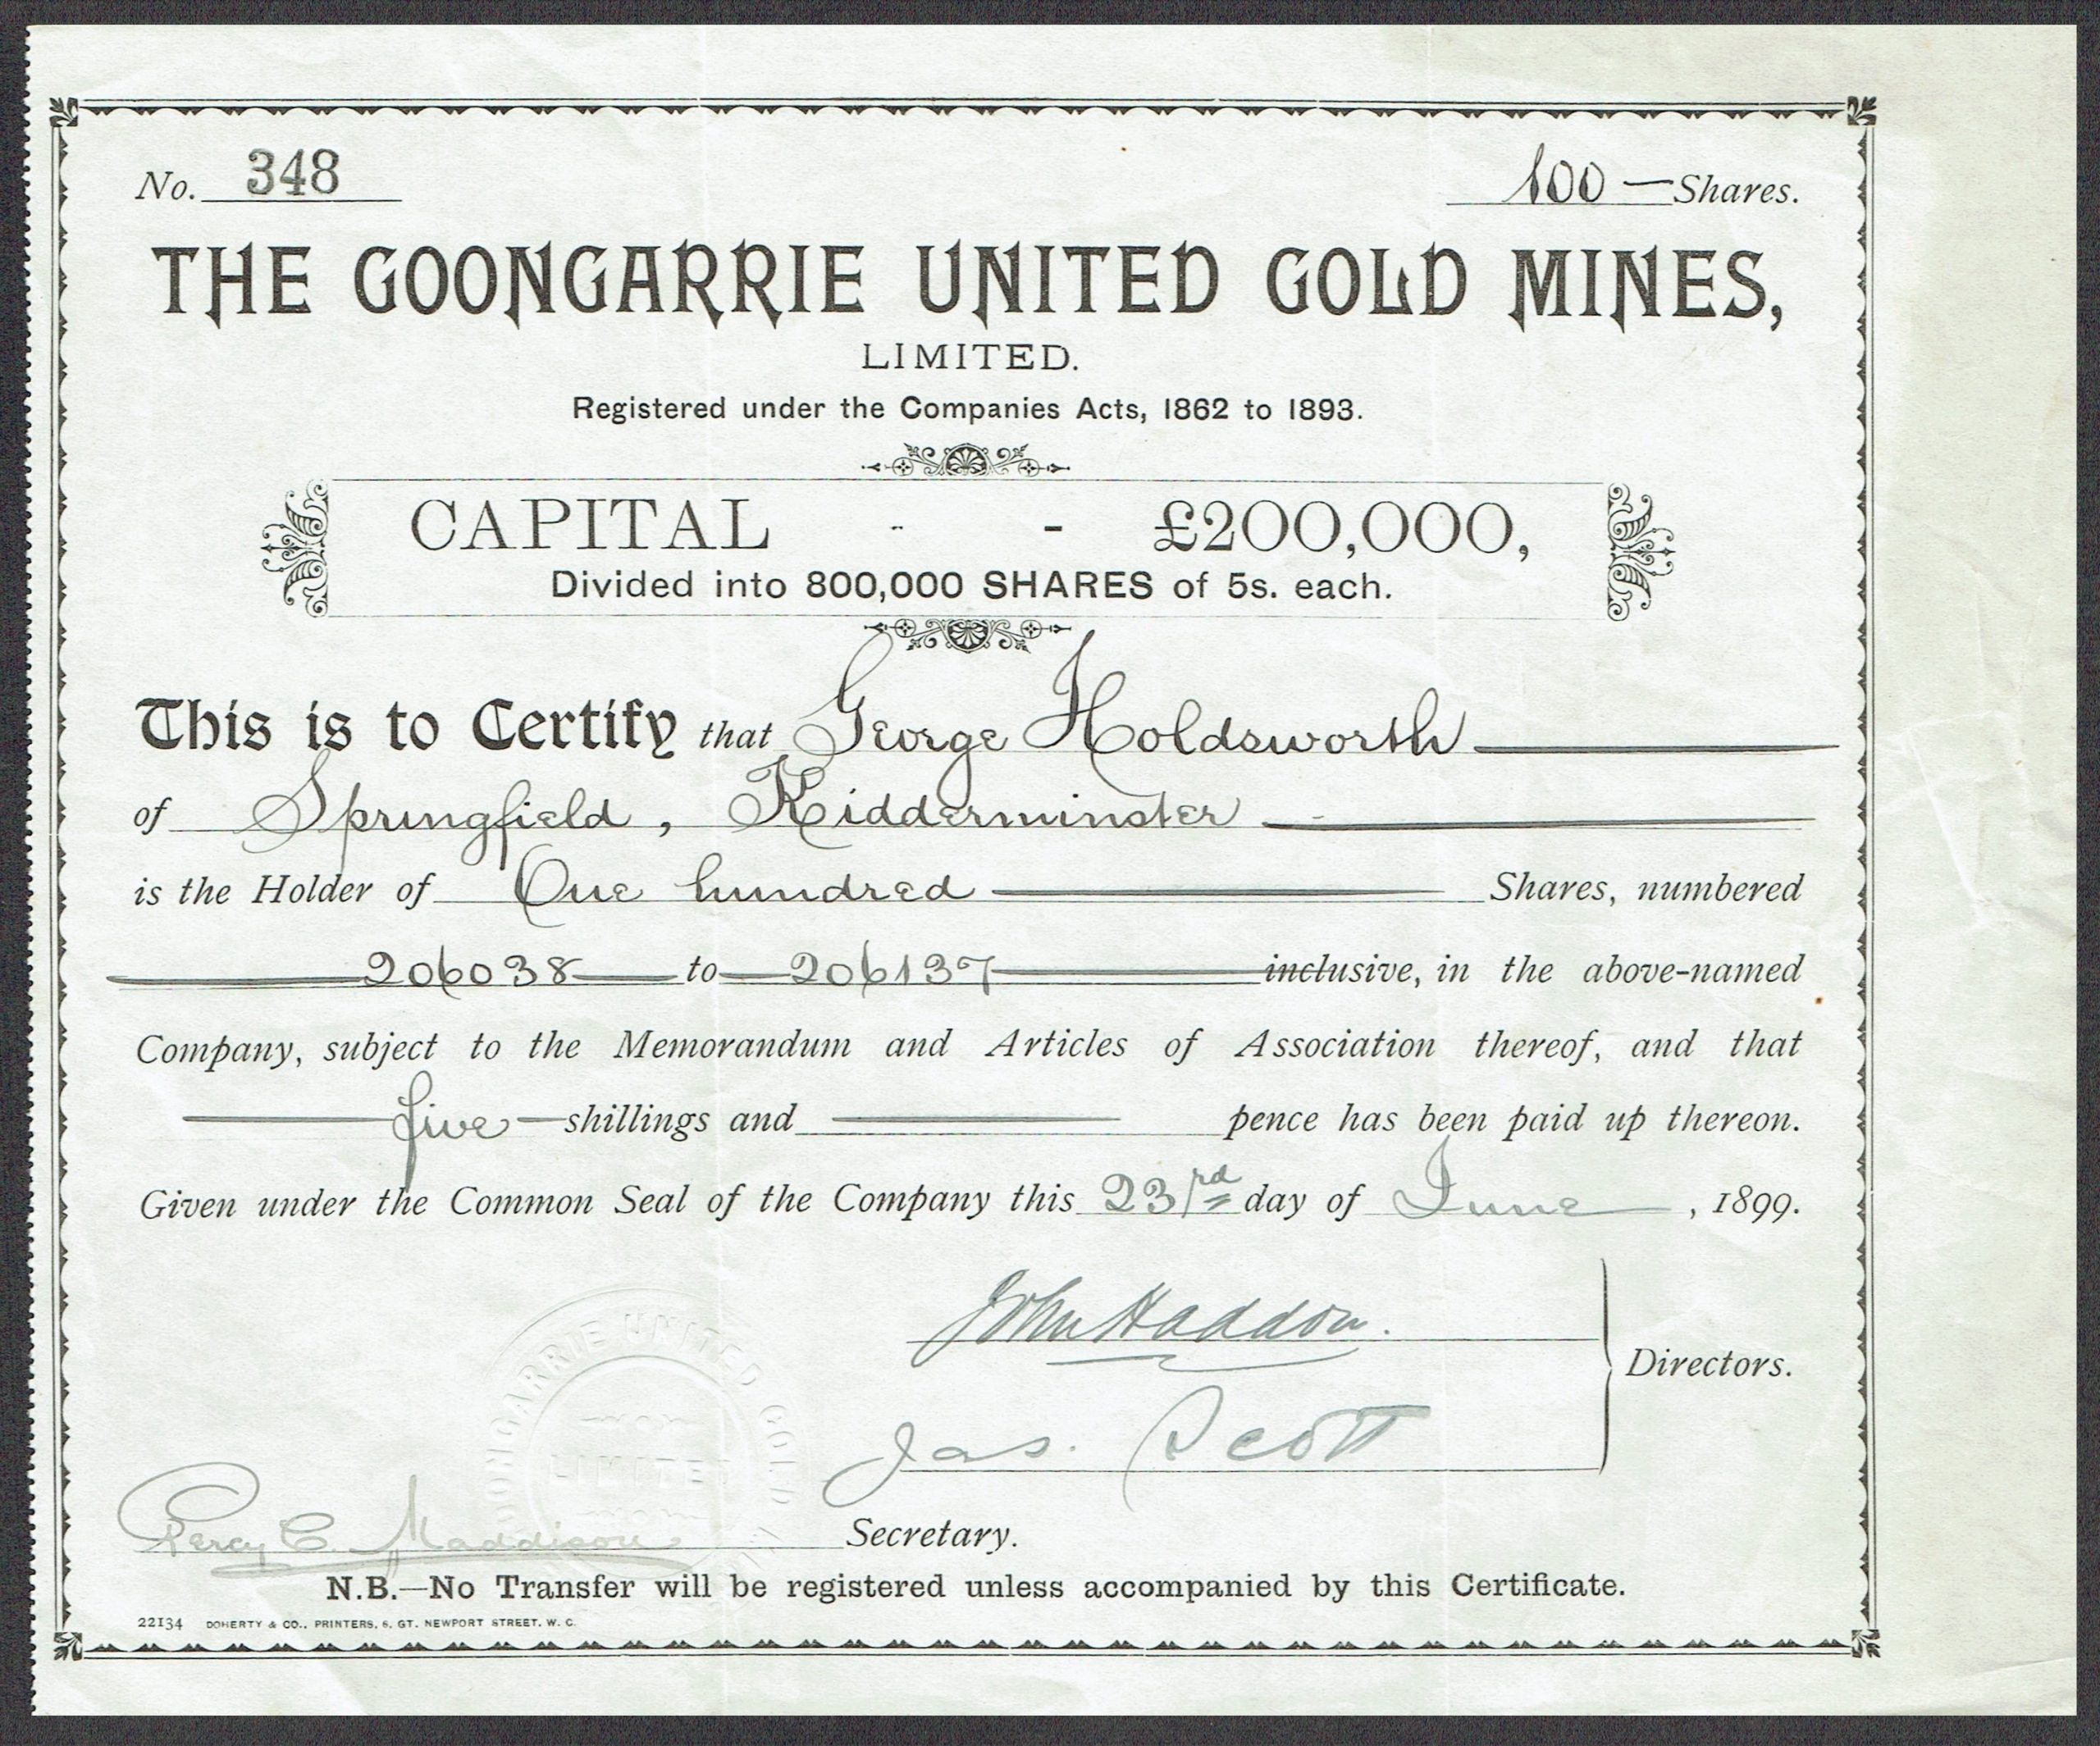 No. 348
100 — Shares.
THE GOONGARRIE UNITED GOLD MINES,
LIMITED.
Registered under the Companies Acts, 1862 to 1893.
CAPITAL - - £200,000,
Divided into 800,000 SHARES of 5s. each.
This is to Certify that George Holdsworth
of Springfield, Kidderminster
is the Holder of One hundred Shares, numbered
206038 to 206137 inclusive, in the above-named
Company, subject to the Memorandum and Articles of Association thereof, and that
five shillings and pence has been paid up thereon.
Given under the Common Seal of the Company this 23rd day of June, 1899.
John Haddon.
Directors.
Jas. Scott
GOONGARRIE UNITED GOLD
LIMITED
Percy C. Maddison
Secretary.
N.B.—No Transfer will be registered unless accompanied by this Certificate.
22134 DOHERTY & CO., PRINTERS, 6, GT. NEWPORT STREET, W. C.